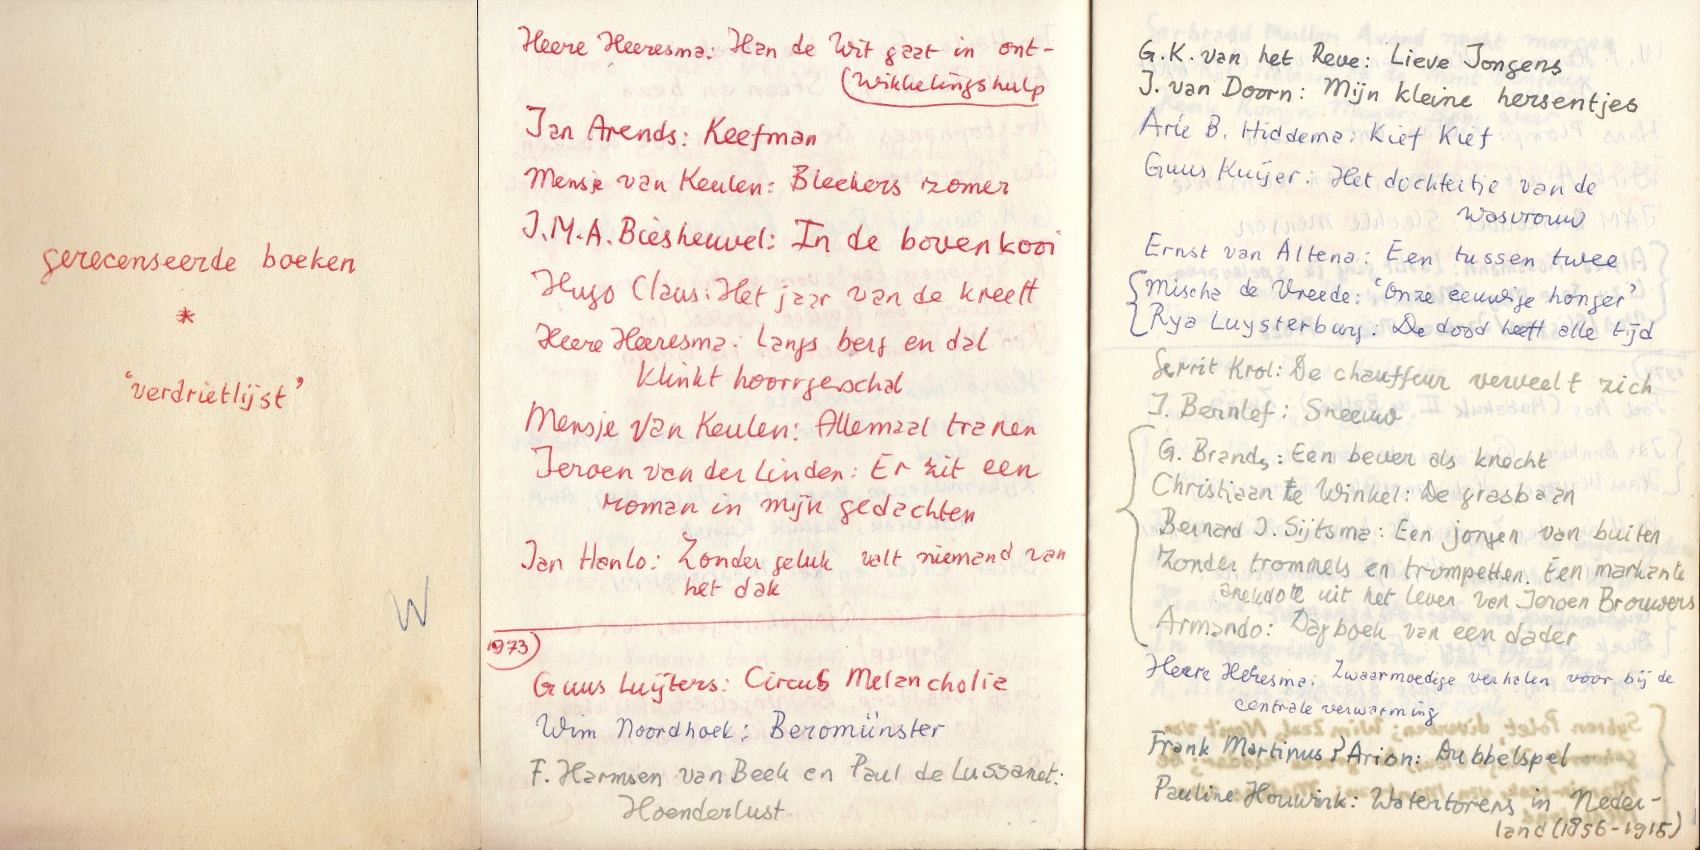 gerecenseerde boeken
*
'verdrietlijst'
W
Heere Heeresma: Han de Wit gaat in ont-
wikkelingshulp
Jan Arends: Keefman
Mensje van Keulen: Bleekers zomer
J.M.A. Biesheuvel: In de bovenkooi
Hugo Claus: Het jaar van de kreeft
Heere Heeresma: Langs berg en dal
klinkt hoorngeschal
Mensje van Keulen: Allemaal tranen
Jeroen van der Linden: Er zit een
roman in mijn gedachten
Jan Hanlo: Zonder geluk valt niemand van
het dak
1973
Guus Luijters: Circus Melancholie
Wim Noordhoek: Beromünster
F. Harmsen van Beek en Paul de Lussanet:
Hoenderlust
G.K. van het Reve: Lieve Jongens
J. van Doorn: Mijn kleine hersentjes
Arie B. Hiddema: Kief Kief
Guus Kuijer: Het dochtertje van de
wasvrouw
Ernst van Altena: Een tussen twee
Mischa de Vreede: 'Onze eeuwige honger'
Rya Luysterburg: De dood heeft alle tijd
Gerrit Krol: De chauffeur verveelt zich
J. Bernlef: Sneeuw
G. Brands: Een bever als knecht
Christiaan te Winkel: De grasbaan
Bernard J. Sijtsma: Een jongen van buiten
Zonder trommels en trompetten. Een markante
anekdote uit het leven van Jeroen Brouwers
Armando: Dagboek van een dader
Heere Heresma: Zwaarmoedige verhalen voor bij de
centrale verwarming
Frank Martinus Arion: Dubbelspel
Pauline Houwink: Watertorens in Neder-
land (1856-1915)